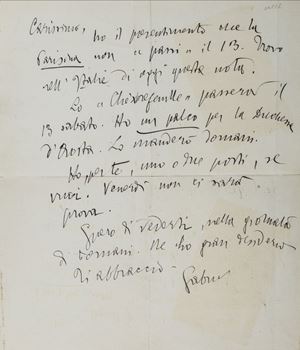 Carissimo,
ho il presentimento che la
Parisina non « passi » il 13. Trovo
nell'Italie di oggi questa nota.
Lo « Chèvrefeuille » passerà il
13 sabato. Ho un palco per la Duchessa
d'Aosta. Lo manderò domani.
Ho, per te, uno o due posti, se
vuoi. Venerdì non ci sarà
prova.
Spero di vederti, nella giornata
di domani. Ne ho gran desiderio
Ti abbraccio
Gabri